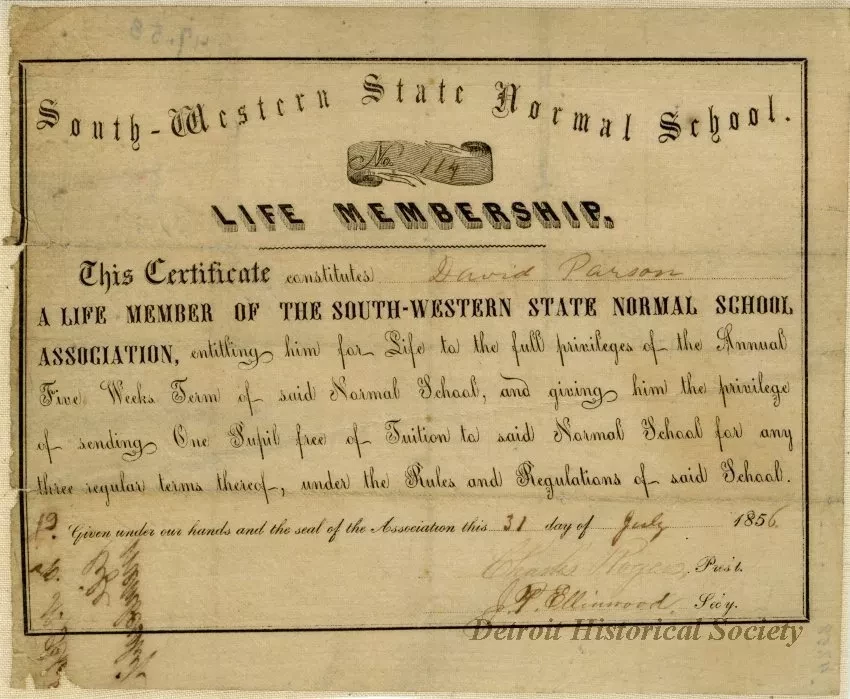 South-Western State Normal School.
No. 114
LIFE MEMBERSHIP.
This Certificate constitutes David Parson
A LIFE MEMBER OF THE SOUTH-WESTERN STATE NORMAL SCHOOL
ASSOCIATION, entitling him for Life to the full privileges of the Annual
Five Weeks Term of said Normal School, and giving him the privilege
of sending One Pupil free of Tuition to said Normal School for any
three regular terms thereof, under the Rules and Regulations of said School.
Given under our hands and the seal of the Association this 31 day of July 1856
Charles Rogers, Pres't.
J. P. Ellinwood, Sec'y.
Detroit Historical Society